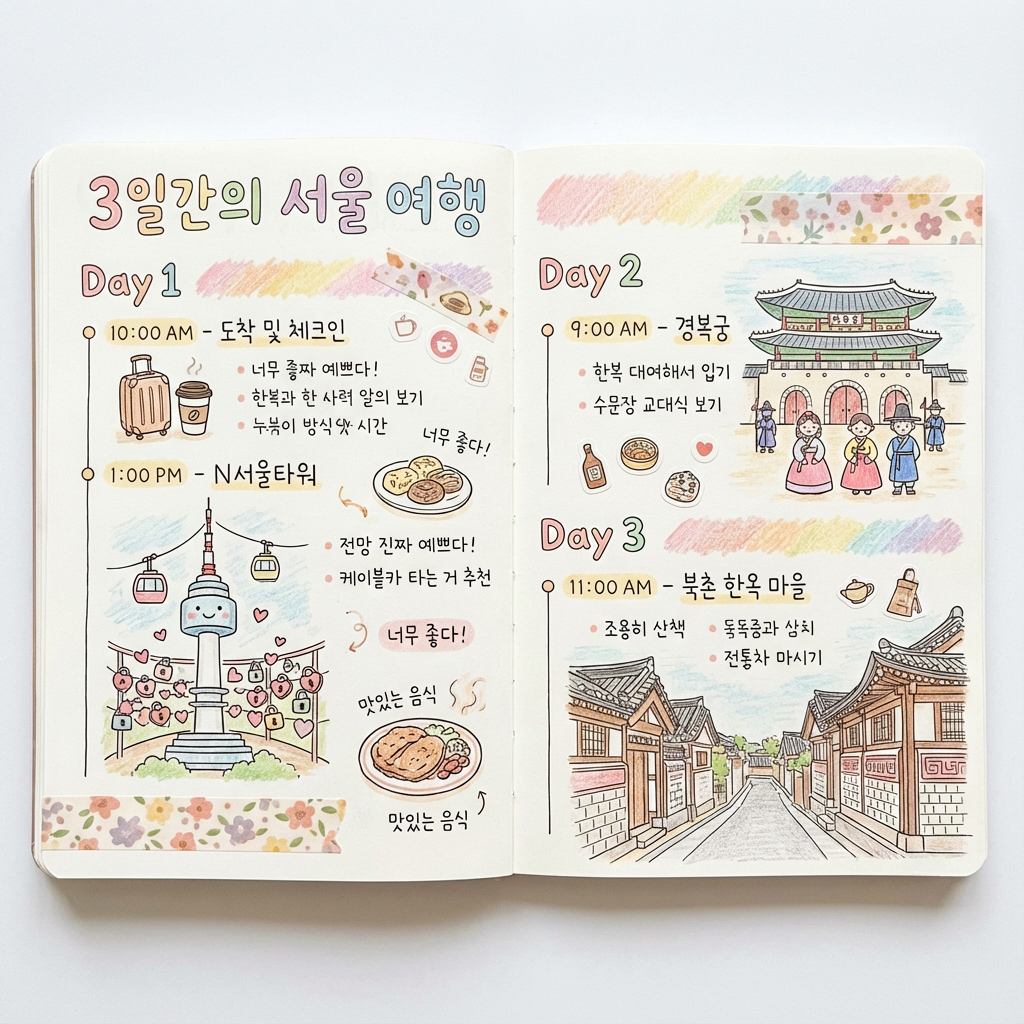 3일간의 서울 여행
Day 1
10:00 AM - 도착 및 체크인
너무 예쁘다!
한복과 한 사력 알의 보기
방식 시간
너무 좋다!
1:00 PM - N서울타워
전망 진짜 예쁘다!
케이블카 타는 거 추천
너무 좋다!
맛있는 음식
맛있는 음식
Day 2
9:00 AM - 경복궁
한복 대여해서 입기
수문장 교대식 보기
Day 3
11:00 AM - 북촌 한옥 마을
조용히 산책
전통차 마시기